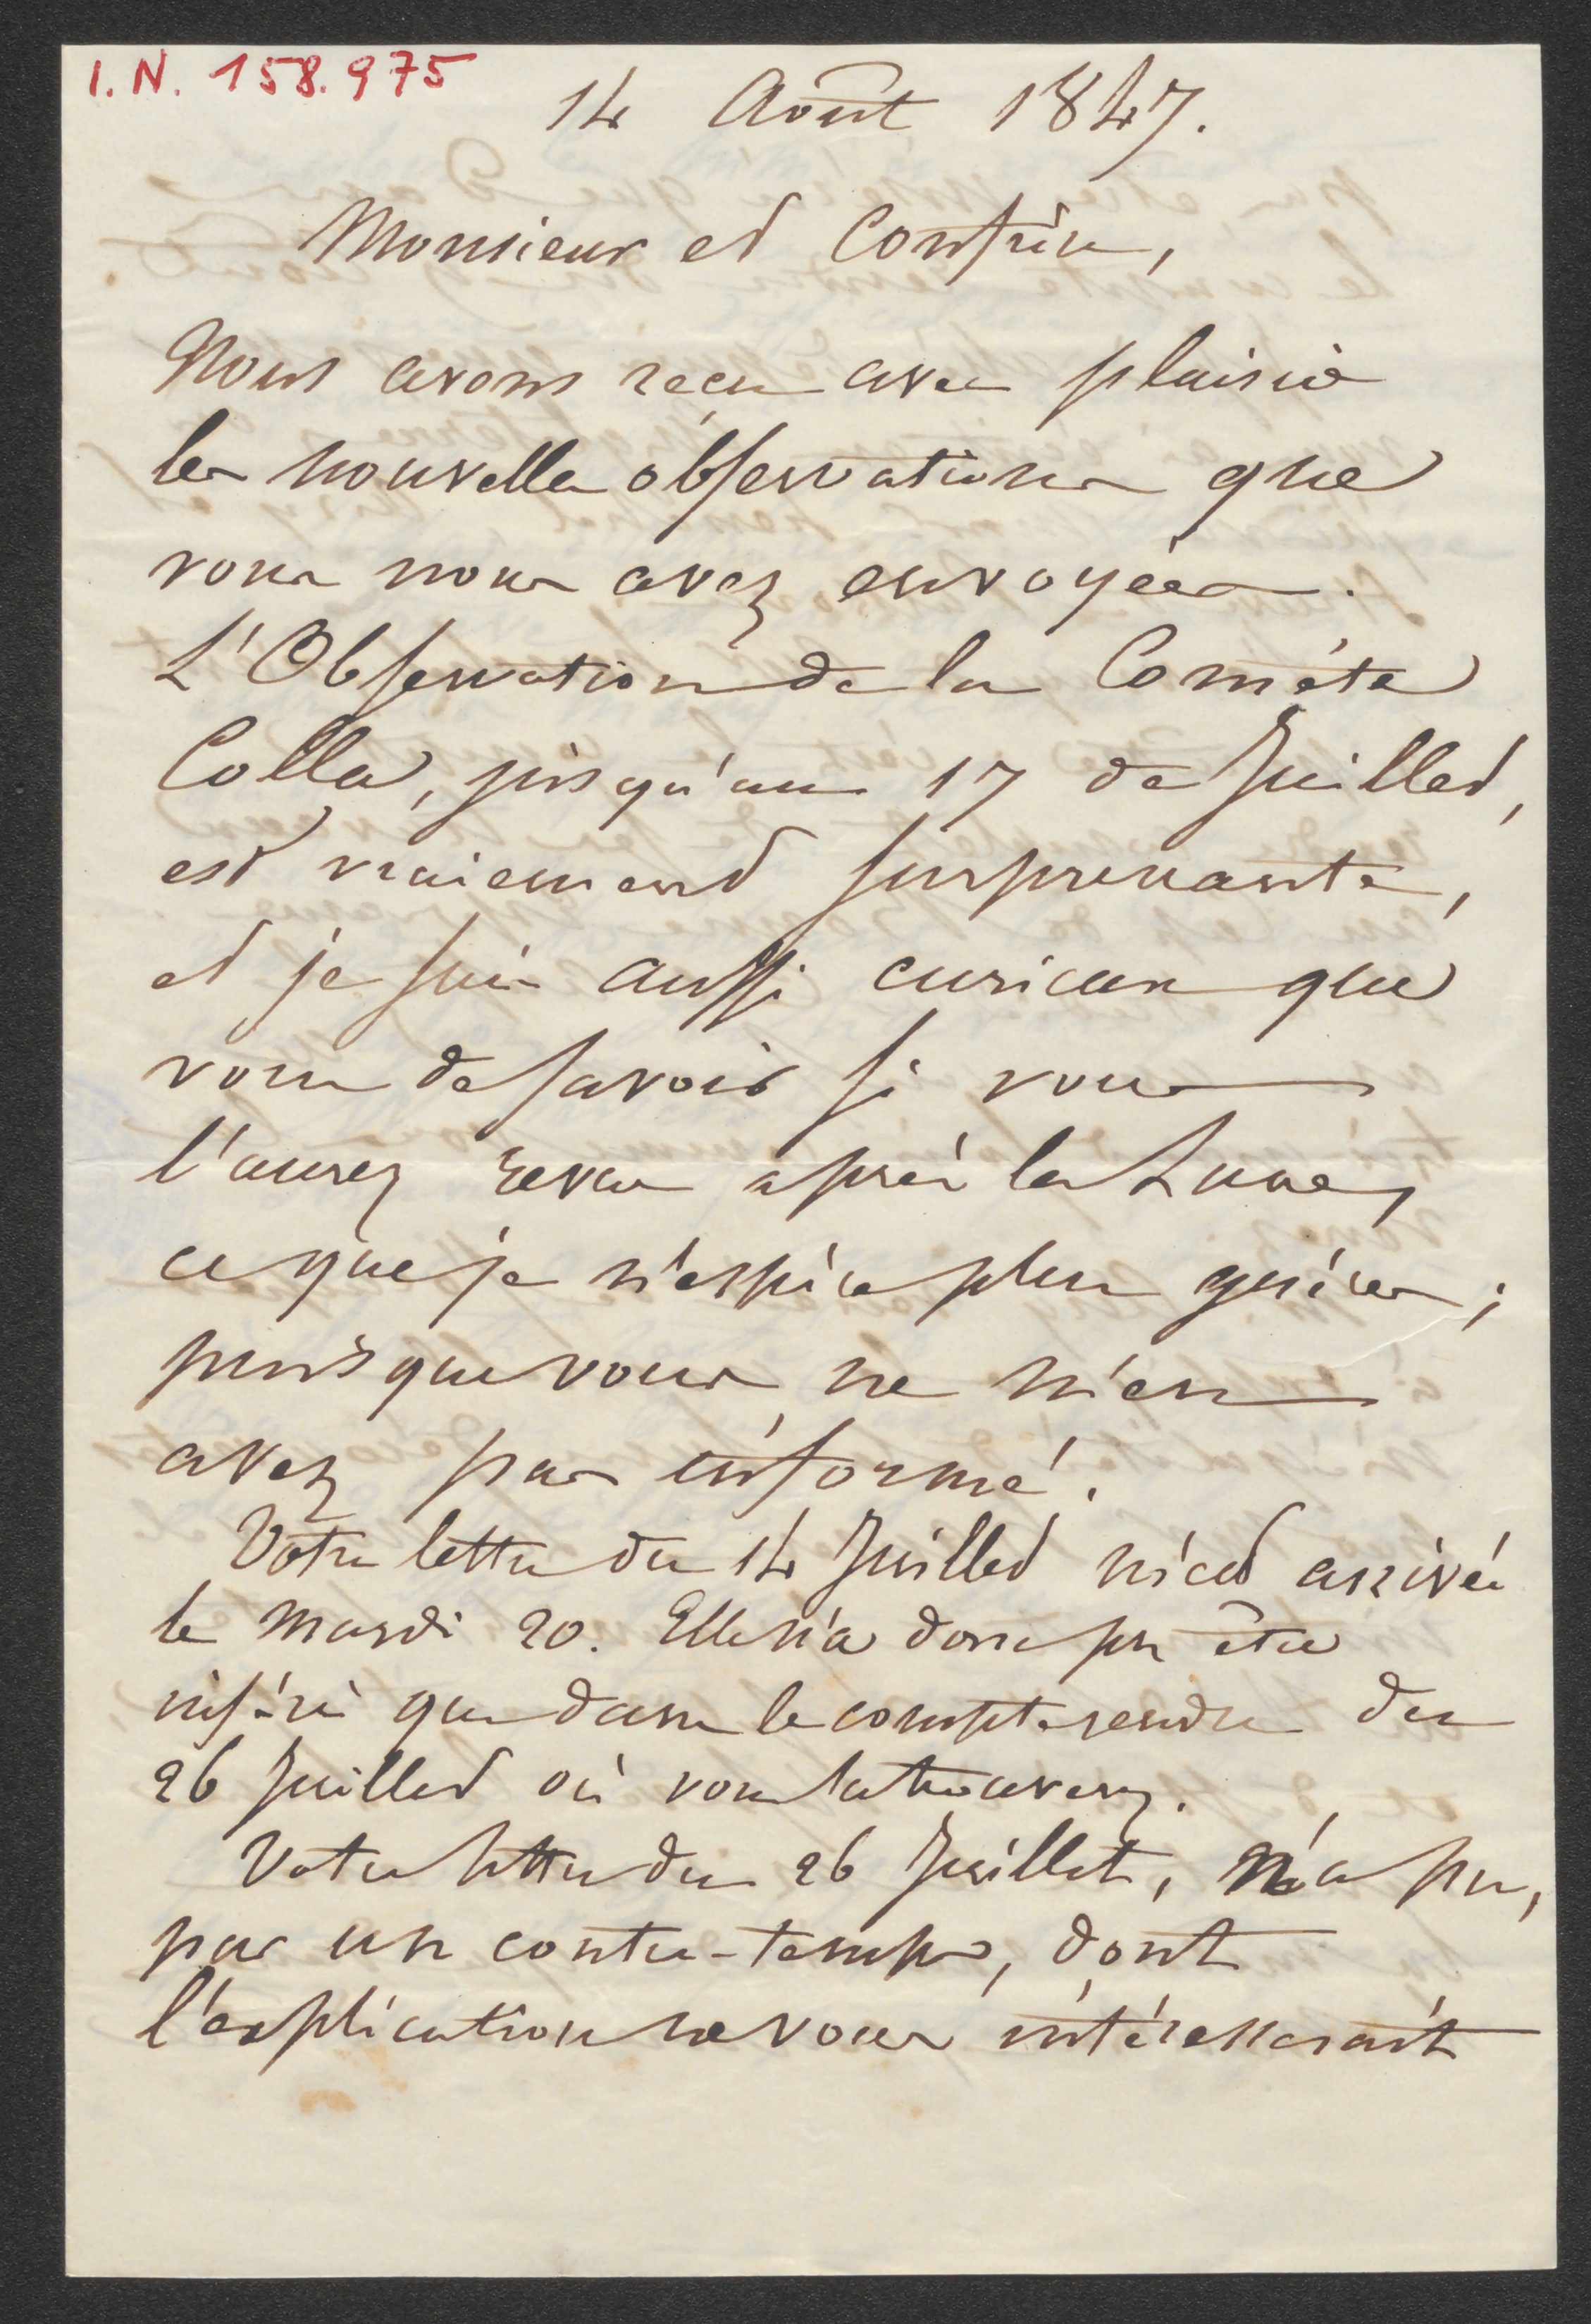 I.N. 158.975
14 Août 1847.
Monsieur et Confrère,
Nous avons reçu avec plaisir
les nouvelles observations que
vous nous avez envoyées.
L'Observation de la Comète
Colla, jusqu'au 17 de Juillet,
est vraiement surprenante,
et je suis aussi curieux que
vous de savoir si vous
l'aurez revue après la Lune,
ce que je n'espère plus guères;
puisque vous ne m'en
avez pas informé.
Votre lettre du 14 Juillet m'est arrivée
le mardi 20. Elle n'a donc pu être
inséré que dans le compte rendu du
26 Juillet où vous la trouverez.
Votre lettre du 26 Juillet, n'a pu,
par un contre-temps, dont
l'explication ne vous intéresserait